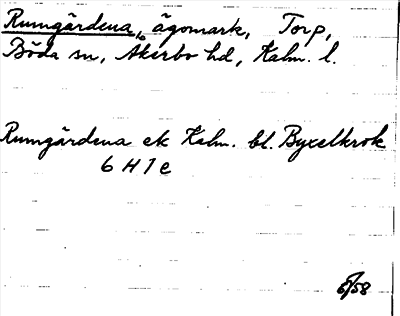 Rumgårdena, ägomark, Torp,
Böda sn, Åkerbo hd, Kalm. l.
Rumgårdena ek Kalm. bl. Byxelkrok
6 H 1 e
6/58